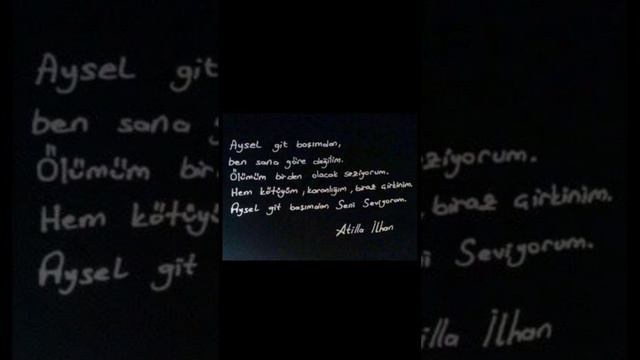 Aysel git başımdan,
ben sana göre değilim.
Ölümüm birden olacak seziyorum.
Hem kötüyüm, karanlığım, biraz çirkinim.
Aysel git başımdan Seni Seviyorum.
Atilla İlhan